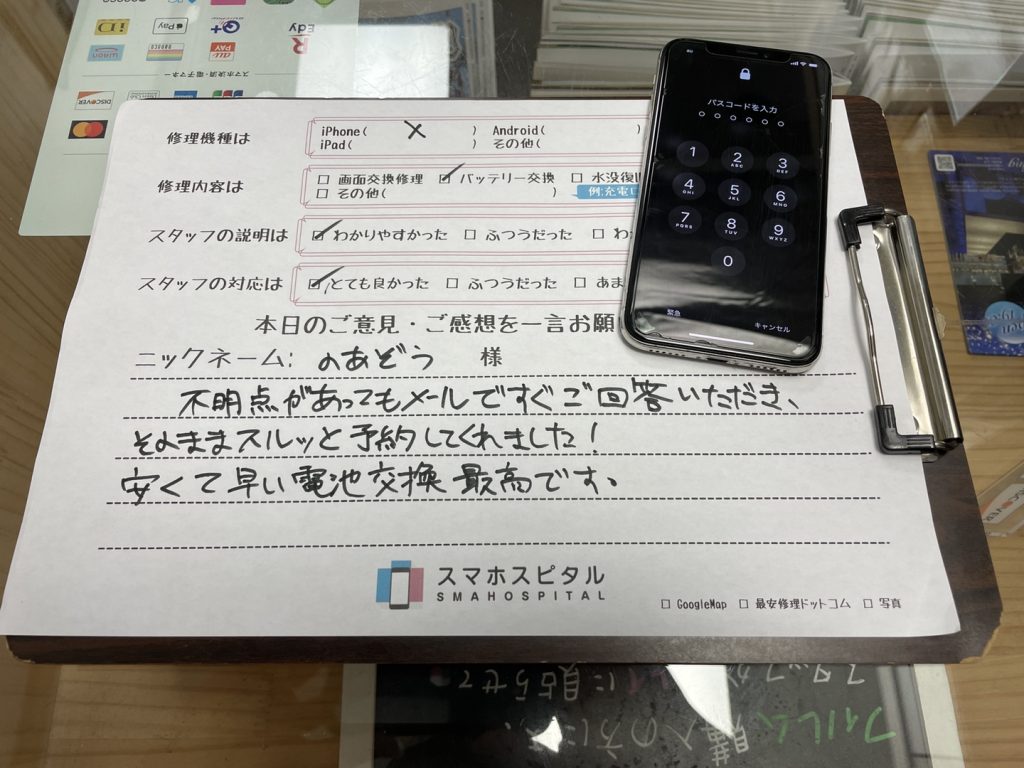 iD
Pay
QUICPay+
Edy
WAON
nanaco
au PAY
スマホ決済・電子マネー
DISCOVER
JCB
修理機種は
iPhone( X ) Android( )
iPad( ) その他(
修理内容は
□ 画面交換修理 ☑ バッテリー交換 □ 水没復旧
□ その他( ) 例:充電口
スタッフの説明は
☑ わかりやすかった □ ふつうだった □ わ
スタッフの対応は
☑ とても良かった □ ふつうだった □ あま
本日のご意見・ご感想を一言お願
ニックネーム: のあどう 様
不明点があってもメールですぐご回答いただき、
そのままスルッと予約してくれました!
安くて早い電池交換最高です。
スマホスピタル
SMAHOSPITAL
□ GoogleMap □ 最安修理ドットコム □ 写真
au
パスコードを入力
1
2 ABC
3 DEF
4 GHI
5 JKL
6 MNO
7 PQRS
8 TUV
9 WXYZ
0
緊急
キャンセル
フィルム購入の方に
スタッフが
に貼らせて